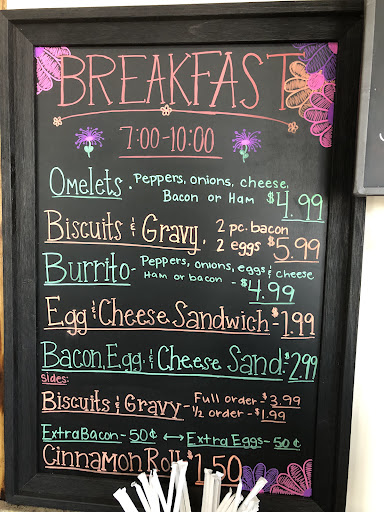 BREAKFAST
7:00-10:00
Omelets. Peppers, onions, cheese,
Bacon or Ham $4.99
Biscuits & Gravy. 2 pc. bacon
2 eggs $5.99
Burrito- Peppers, onions, eggs & cheese
Ham or bacon - $4.99
Egg & Cheese Sandwich-$1.99
Bacon, Egg, & Cheese Sand. $2.99
sides:
Biscuits & Gravy- Full order-$3.99
½ order-$1.99
Extra Bacon-50¢ ↔ Extra Eggs-50¢
Cinnamon Roll $1.50